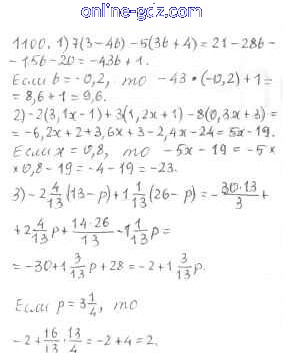 online-gdz.com
1100. 1) 7(3-4b)-5(3b+4)=21-28b-
-15b-20=-43b+1.
Если b=-0,2, то -43•(-0,2)+1=
=8,6+1=9,6.
2)-2(3,1x-1)+3(1,2x+1)-8(0,3x+3)=
=-6,2x+2+3,6x+3-2,4x-24=5x-19.
Если x=0,8, то -5x-19=-5×
×0,8-19=-4-19=-23.
3)-2 4/13 (13-p)+1 1/13 (26-p)=-30·13/3+
+2 4/13 p+14·26/13-1 1/13 p=
=-30+1 3/13 p+28=-2+1 3/13 p.
Если p=3 1/4, то
-2+16/13·13/4=-2+4=2.